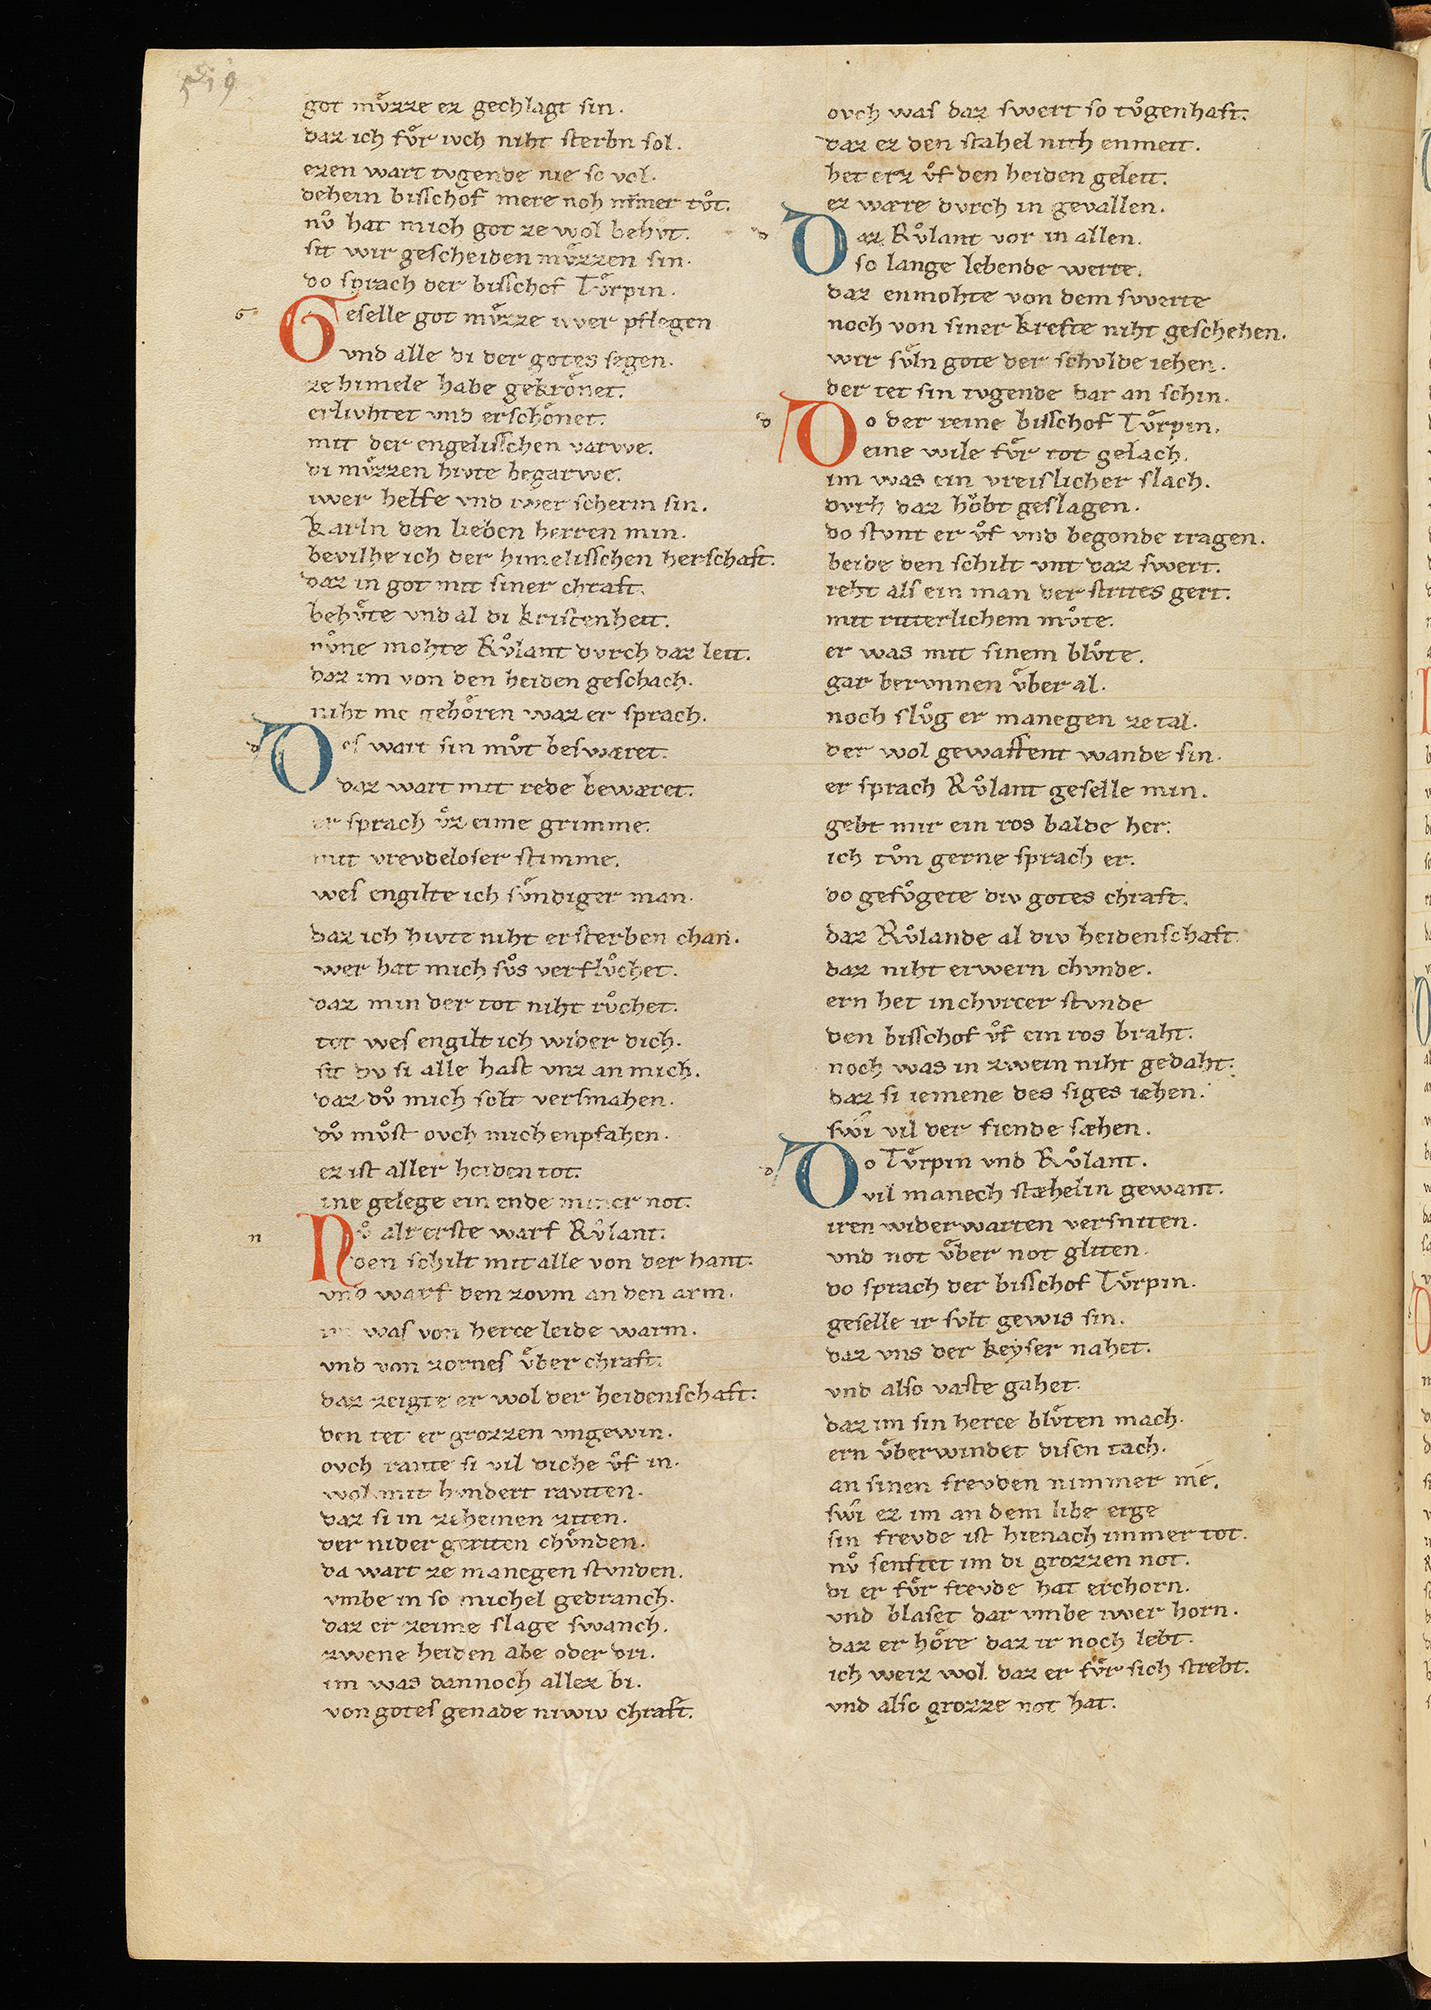 519
got mu̍zze ez gechlagt sin.
daz ich fu̍r iuch niht sterbn sol.
ezen wart tvgende nie so vol.
dehein bisschof mere noh nimer tu̍t.
nv̊ hat mich got ze wol behvt.
sit wir gescheiden mu̍zzen sin.
do sprach der bisschof Tu̍rpin.
Geselle got mu̍zze iwer pflegen
vnd alle di der gotes segen.
ze himele habe gekrȯnet.
erlivhtet vnd erschȯnet.
mit der engelisschen varwe.
di mu̍zzen hivte begarwe.
iwer helfe vnd iwer scherm sin.
Karln den lieben herren min.
bevilhe ich der himelisschen herschaft.
daz in got mit siner chraft.
behv̊te vnd al di kristenheit.
nv̊ne mohte Rv̊lant dvrch daz leit.
daz im von den heiden geschach.
niht me gehȯren waz er sprach.
Des wart sin mv̊t beswæret.
daz wart mit rede bewæret.
er sprach v̊z eime grimme.
mit vrevdeloser stimme.
wes engilte ich sv̊ndiger man.
daz ich hivte niht ersterben chan.
wer hat mich sv̊s verflv̊chet.
daz min der tot niht rv̊chet.
tot wes engilt ich wider dich.
sit dv si alle hast vnz an mich.
daz dv̊ mich solt versmahen.
dv̊ mv̊st ovch mich enpfahen.
ez ist aller heiden tot.
ine gelege ein ende miner not.
Nv̊ alr erste warf Rv̊lant.
den schilt mit alle von der hant.
vnd warf den zovm an den arm.
im was von herce leide warm.
vnd von zornes v̊ber chraft.
daz zeigte er wol der heidenschaft.
den tet er grozzen vngewin.
ovch rante si vil diche v̊f in.
wol mit hvndert ravtten.
daz si in zeheinen ziten.
der nider geriten chv̊nden.
da wart ze manegen stvnden.
vmbe in so michel gedranch.
daz er zeime slage swanch.
zwene heiden abe oder dri.
im was dannoch allez bi.
von gotes genade niwiv chraft.
ovch was daz swert so tv̊genhaft.
daz ez den stahel nith enmeit.
het erz v̊f den heiden geleit.
ez wære dvrch in gevallen.
Daz Rv̊lant vor in allen.
so lange lebende werte.
daz enmohte von dem swerte
noch von siner krefte niht geschehen.
wir sv̊ln gote der schvlde iehen.
der tet sin tvgende dar an schin.
Do der reine bisschof Tv̊rpin.
eine wile fv̊r tot gelach.
im was ein vreislicher slach.
dvrh daz hȯbt geslagen.
do stvnt er v̊f vnd begonde tragen.
beide den schilt vnt daz swert.
reht als ein man der strites gert.
mit ritterlichem mv̊te.
er was mit sinem blv̊te.
gar bervnnen v̊ber al.
noch slv̊g er manegen ze tal.
der wol gewaffent wande sin.
er sprach Rv̊lant geselle min.
gebt mir ein ros balde her.
ich tv̊n gerne sprach er.
do gefv̊gete div gotes chraft.
daz Rv̊lande al div heidenschaft.
daz niht erwern chvnde.
ern het in chvrcer stvnde
den bisschof v̊f ein ros braht.
noch was in zwein niht gedaht.
daz si iemene des siges iæhen.
swi vil der fiende sæhen.
Do Tv̊rpin vnd Rv̊lant.
vil manech stæhelin gewant.
iren widerwarten versniten.
vnd not v̊ber not gliten.
do sprach der bisschof Tv̊rpin.
geselle ir svlt gewis sin.
daz vns der keyser nahet.
vnd also vaste gahet.
daz im sin herce blv̊ten mach.
ern v̊berwindet disen tach.
an sinen frevden nimmer me.
swi ez im an dem libe erge
sin frevde ist hienach immer tot.
nv̊ senftet im di grozzen not.
di er fv̊r frevde hat erchorn.
vnd blaset dar vmbe iwer horn.
daz er hȯre daz ir noch lebt.
ich weiz wol daz er fv̊r sich strebt.
vnd also grozze not hat.